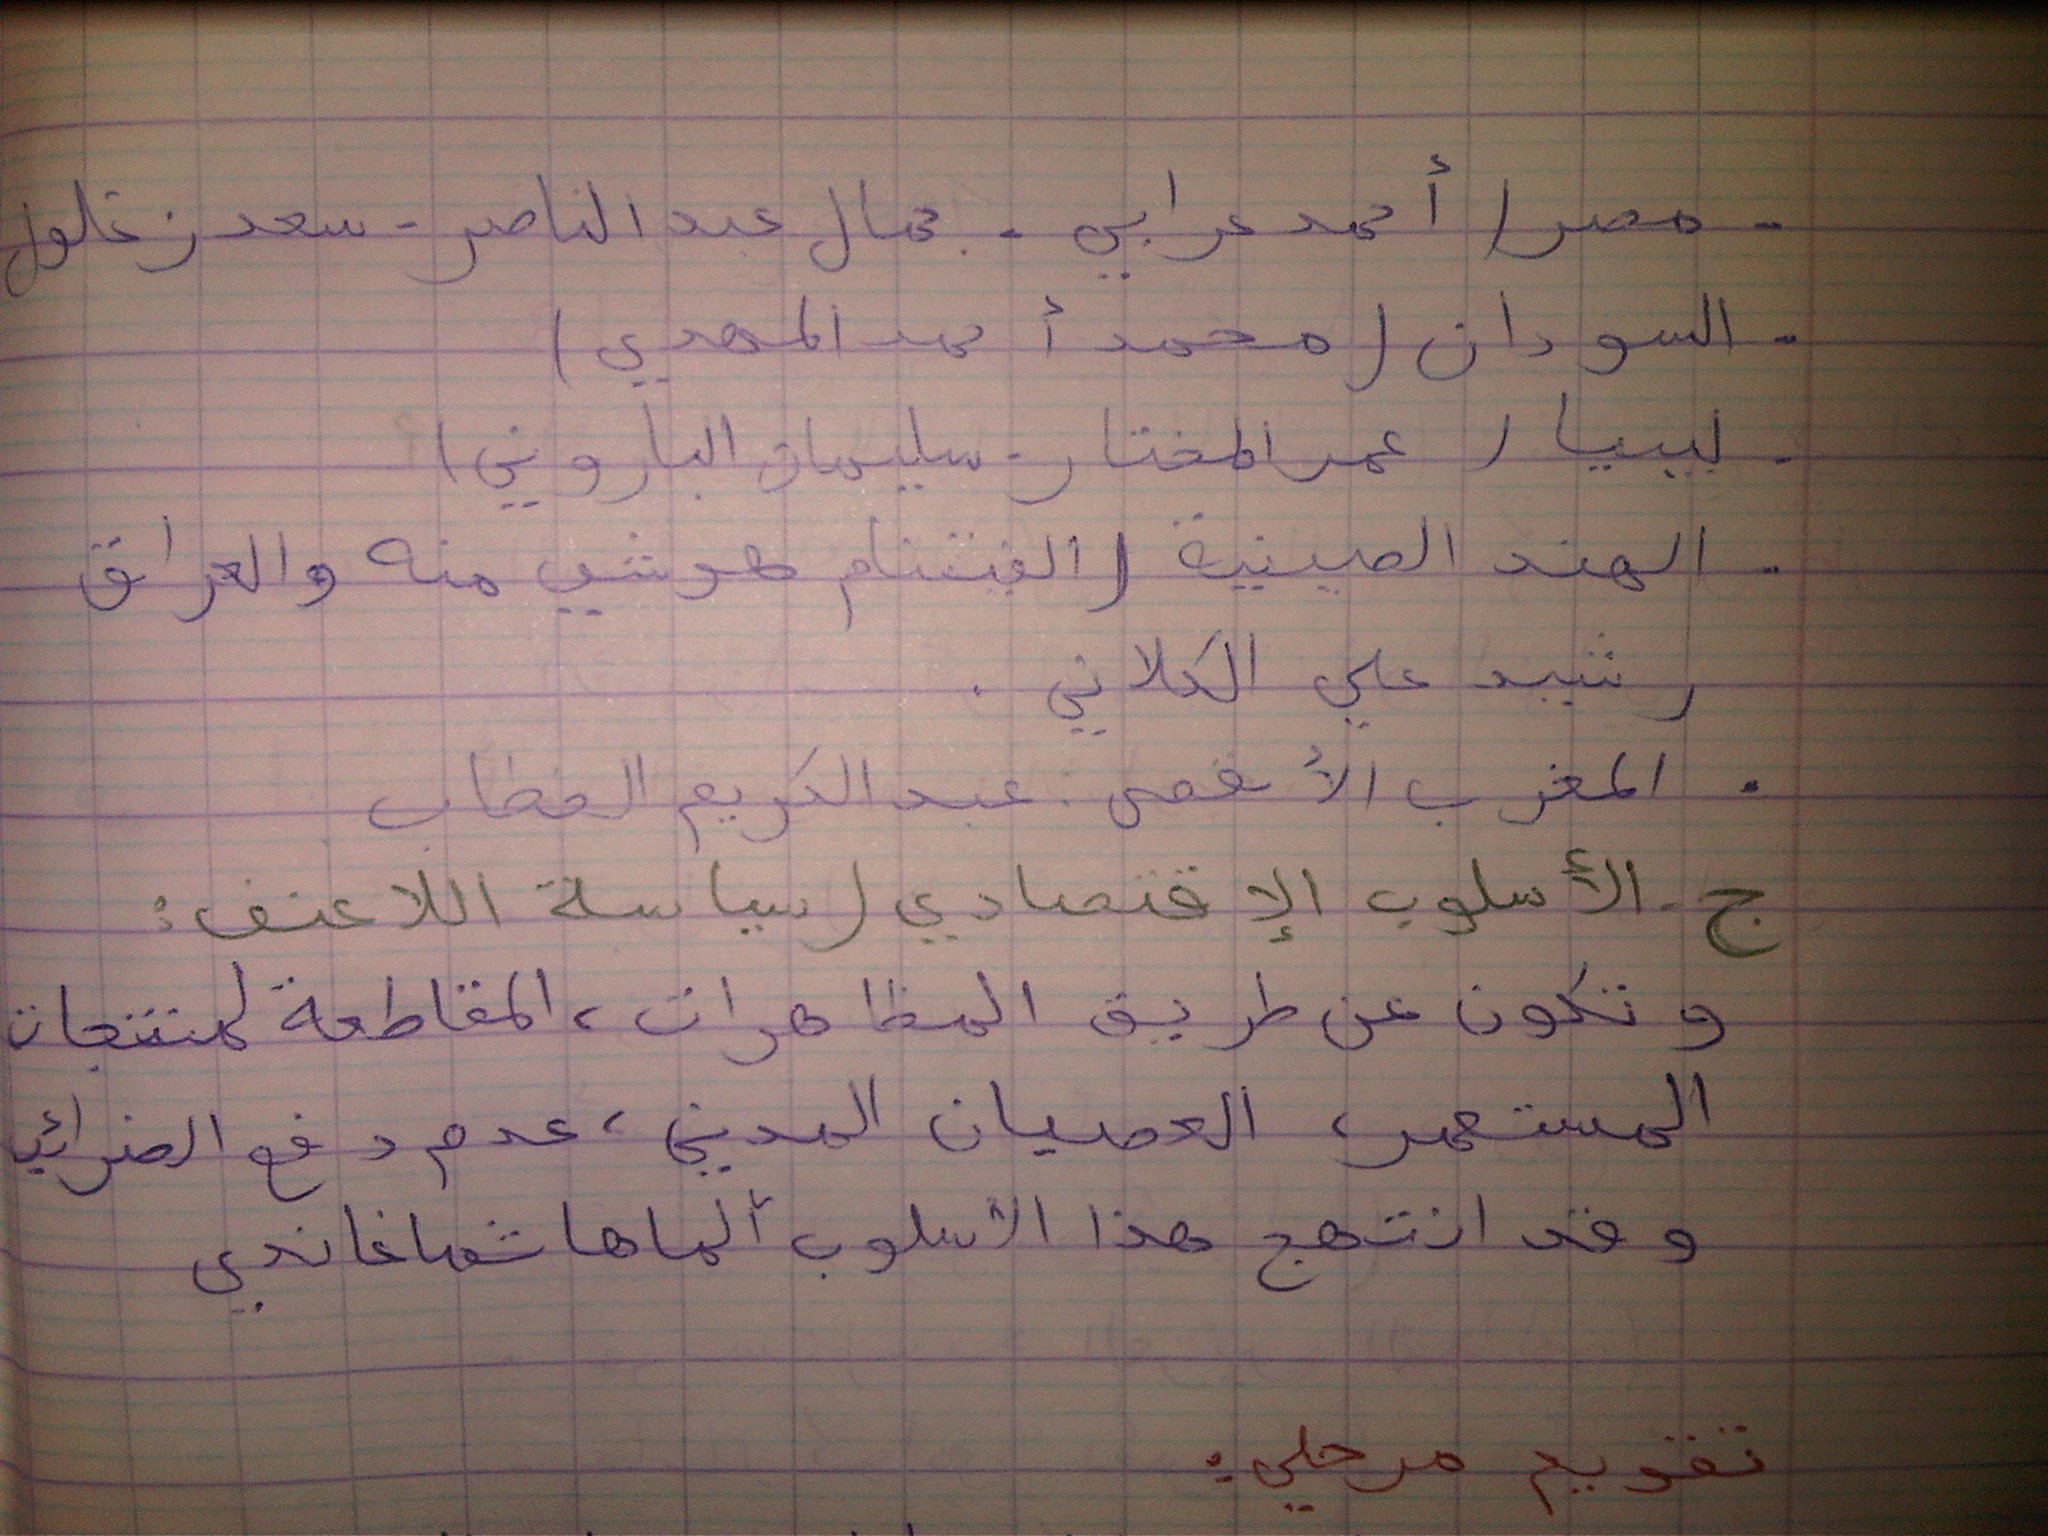 - مصر ( أحمد عرابي - جمال عبد الناصر - سعد زغلول
- السودان ( محمد أحمد المهدي )
- ليبيا ( عمر المختار - سليمان الباروني )
- الهند الصينية ( الفيتنام هوشي منه والعراق
رشيد علي الكلاني .
• المغرب الأقصى : عبد الكريم الخطاب
ج - الأسلوب الإقتصادي ( سياسة اللاعنف :
وتكون عن طريق المظاهرات ، المقاطعة لمنتجات
المستعمر ، العصيان المدني ، عدم دفع الضرائب
وقد انتهج هذا الأسلوب ألماهاتما غاندي
تقويم مرحلي :